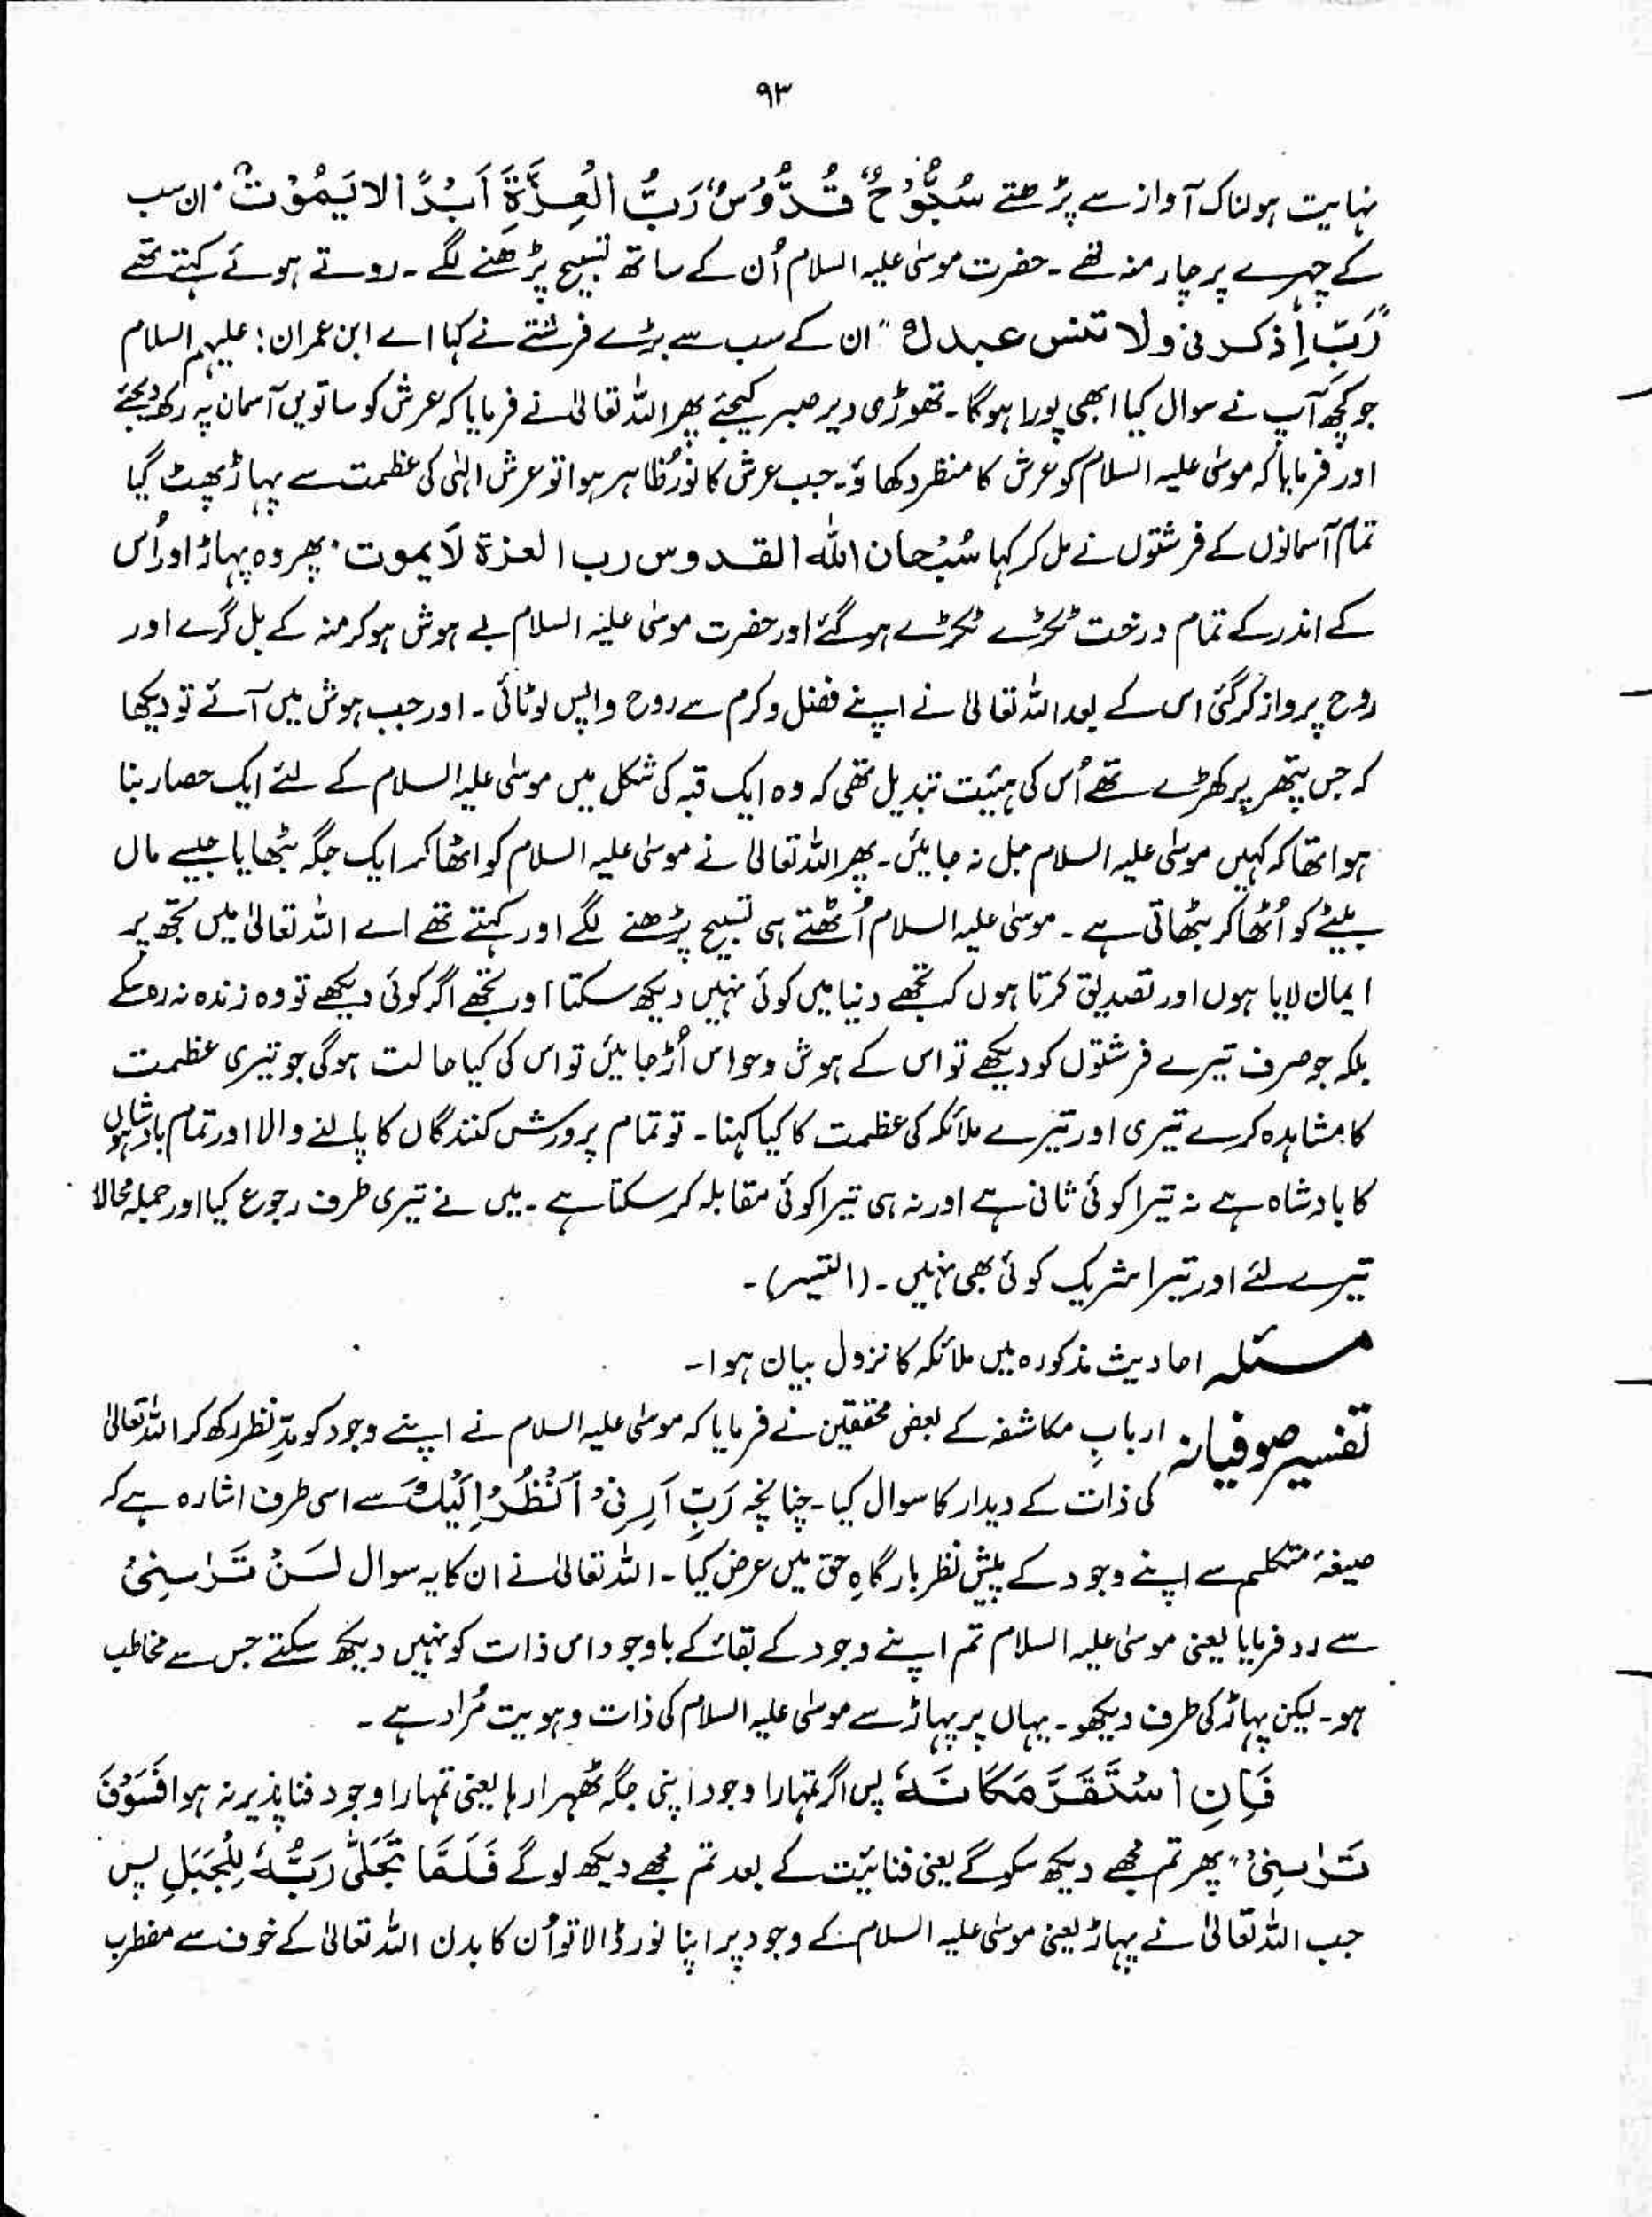 ۹۳
نہایت ہولناک آواز سے پڑھتے سُبُّوْحٌ قُدُّوْسٌ رَبُّ الْعِزَّةِ اَبَدًا لا يَمُوْتُ" ان سب
کے چہرے پر چار منہ تھے۔ حضرت موسیٰ علیہ السلام اُن کے ساتھ تسبیح پڑھنے لگے۔ روتے ہوئے کہتے تھے
"رَبِّ اِذکرنی ولا تنس عبدك" ان کے سب سے بڑے فرشتے نے کہا اے ابن عمران: علیہم السلام
جو کچھ آپ نے سوال کیا ابھی پورا ہوگا۔ تھوڑی دیر صبر کیجئے پھر اللہ تعالیٰ نے فرمایا کہ عرش کو ساتویں آسمان پہ رکھ دیجئے
اور فرمایا کہ موسیٰ علیہ السلام کو عرش کا منظر دکھاؤ۔ جب عرش کا نُور ظاہر ہوا تو عرش الٰہی کی عظمت سے پہاڑ پھٹ گیا
تمام آسمانوں کے فرشتوں نے مل کر کہا سُبْحان الله القدوس رب العزة لَا يموت" پھر وہ پہاڑ اور اُس
کے اندر کے تمام درخت ٹکڑے ٹکڑے ہو گئے اور حضرت موسیٰ علیہ السلام بے ہوش ہو کر منہ کے بل گرے اور
روح پرواز کر گئی اس کے بعد اللہ تعالیٰ نے اپنے فضل و کرم سے روح واپس لوٹائی۔ اور جب ہوش میں آئے تو دیکھا
کہ جس پتھر پر کھڑے تھے اُس کی ہیئت تبدیل تھی کہ وہ ایک قبہ کی شکل میں موسیٰ علیہ السلام کے لئے ایک حصار بنا
ہوا تھا کہ کہیں موسیٰ علیہ السلام جل نہ جائیں۔ پھر اللہ تعالیٰ نے موسیٰ علیہ السلام کو اٹھا کر ایک جگہ بٹھایا جیسے ماں
بیٹے کو اُٹھا کر بٹھاتی ہے۔ موسیٰ علیہ السلام اُٹھتے ہی تسبیح پڑھنے لگے اور کہتے تھے اے اللہ تعالیٰ میں تجھ پر
ایمان لایا ہوں اور تصدیق کرتا ہوں کہ تجھے دنیا میں کوئی نہیں دیکھ سکتا اور تجھے اگر کوئی دیکھے تو وہ زندہ نہ رہ سکے
بلکہ جو صرف تیرے فرشتوں کو دیکھے تو اس کے ہوش و حواس اُڑ جائیں تو اس کی کیا حالت ہوگی جو تیری عظمت
کا مشاہدہ کرے تیری اور تیرے ملائکہ کی عظمت کا کیا کہنا۔ تو تمام پرورش کنندگاں کا پالنے والا اور تمام بادشاہوں
کا بادشاہ ہے نہ تیرا کوئی ثانی ہے اور نہ ہی تیرا کوئی مقابلہ کر سکتا ہے۔ میں نے تیری طرف رجوع کیا اور جملہ محالا
تیرے لئے اور تیرا شریک کوئی بھی نہیں۔ (التیسر)۔
مسئلہ احادیث مذکورہ میں ملائکہ کا نزول بیان ہوا۔
تفسیر صوفیانہ اربابِ مکاشفہ کے بعض محققین نے فرمایا کہ موسیٰ علیہ السلام نے اپنے وجود کو مدِّنظر رکھ کر اللہ تعالیٰ
کی ذات کے دیدار کا سوال کیا۔ چنانچہ رَبِّ اَرِنِیْ اَنْظُرْ اِلَيْكَ سے اسی طرف اشارہ ہے کہ
صیغۂ متکلم سے اپنے وجود کے پیش نظر بارگاہِ حق میں عرض کیا۔ اللہ تعالیٰ نے ان کا یہ سوال لَنْ تَرٰىنِیْ
سے رد فرمایا یعنی موسیٰ علیہ السلام تم اپنے وجود کے بقائے کے باوجود اس ذات کو نہیں دیکھ سکتے جس سے مخاطب
ہو۔ لیکن پہاڑ کی طرف دیکھو۔ یہاں پر پہاڑ سے موسیٰ علیہ السلام کی ذات و ہویت مُراد ہے۔
فَاِنِ اسْتَقَرَّ مَكَانَهٗ پس اگر تمہارا وجود اپنی جگہ ٹھہرا رہا یعنی تمہارا وجود فنا پذیر نہ ہوا فَسَوْفَ
تَرٰىنِیْ" پھر تم مجھے دیکھ سکو گے یعنی فنائیت کے بعد تم مجھے دیکھ لو گے فَلَمَّا تَجَلّٰى رَبُّهٗ لِلْجَبَلِ پس
جب اللہ تعالیٰ نے پہاڑ یعنی موسیٰ علیہ السلام کے وجود پر اپنا نور ڈالا تو اُن کا بدن اللہ تعالیٰ کے خوف سے مضطرب